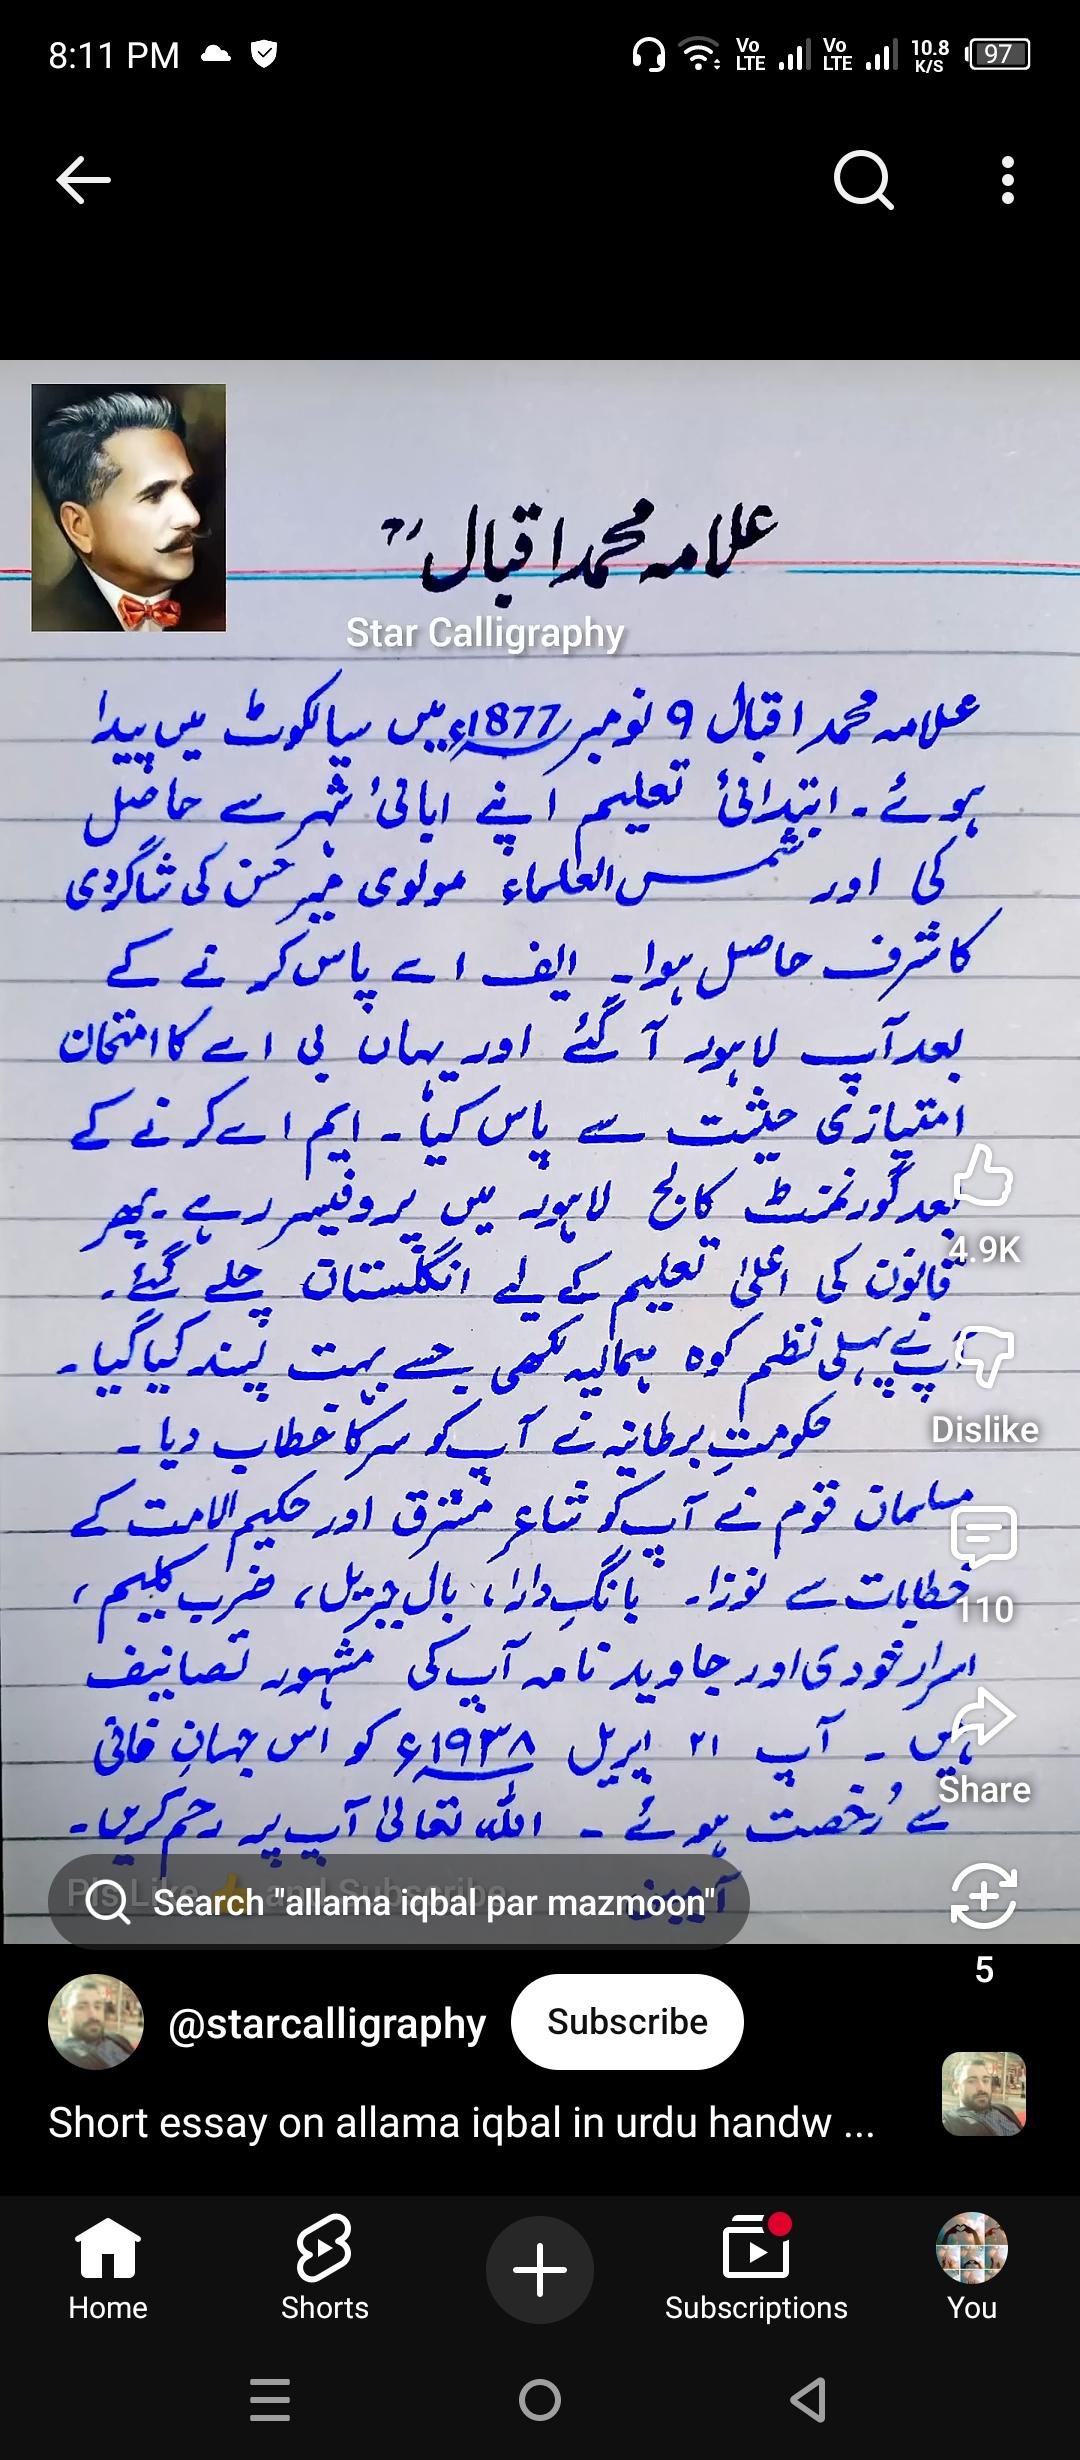 8:11 PM
Vo LTE Vo LTE 10.8 K/S 97
علامہ محمد اقبال ؒ
Star Calligraphy
علامہ محمد اقبال 9 نومبر 1877ء میں سیالکوٹ میں پیدا
ہوئے ۔ ابتدائی تعلیم اپنے ابائی شہر سے حاصل
کی اور شمس العلماء مولوی میر حسن کی شاگردی
کا شرف حاصل ہوا۔ ایف اے پاس کرنے کے
بعد آپ لاہور آ گئے اور یہاں بی اے کا امتحان
امتیازی حیثیت سے پاس کیا ۔ ایم اے کرنے کے
بعد گورنمنٹ کالج لاہور میں پروفیسر رہے ۔ پھر
قانون کی اعلیٰ تعلیم کے لیے انگلستان چلے گئے ۔
آپ نے پہلی نظم کوہ ہمالیہ لکھی جسے بہت پسند کیا گیا ۔
حکومتِ برطانیہ نے آپ کو سر کا خطاب دیا ۔
مسلمان قوم نے آپ کو شاعر مشرق اور حکیم الامت کے
خطابات سے نوزا۔ بانگِ دارا، بال جبریل، ضرب کلیم،
اسرار خودی اور جاوید نامہ آپ کی مشہور تصانیف
ہیں ۔ آپ ۲۱ اپریل ۱۹۳۸ء کو اس جہانِ فانی
سے رُخصت ہوئے ۔ اللہ تعالیٰ آپ پر رحم کریں ۔
آمین
Pls Like 👍 and Subscribe
Search "allama iqbal par mazmoon"
4.9K
Dislike
110
Share
5
@starcalligraphy Subscribe
Short essay on allama iqbal in urdu handw ...
Home Shorts Subscriptions You